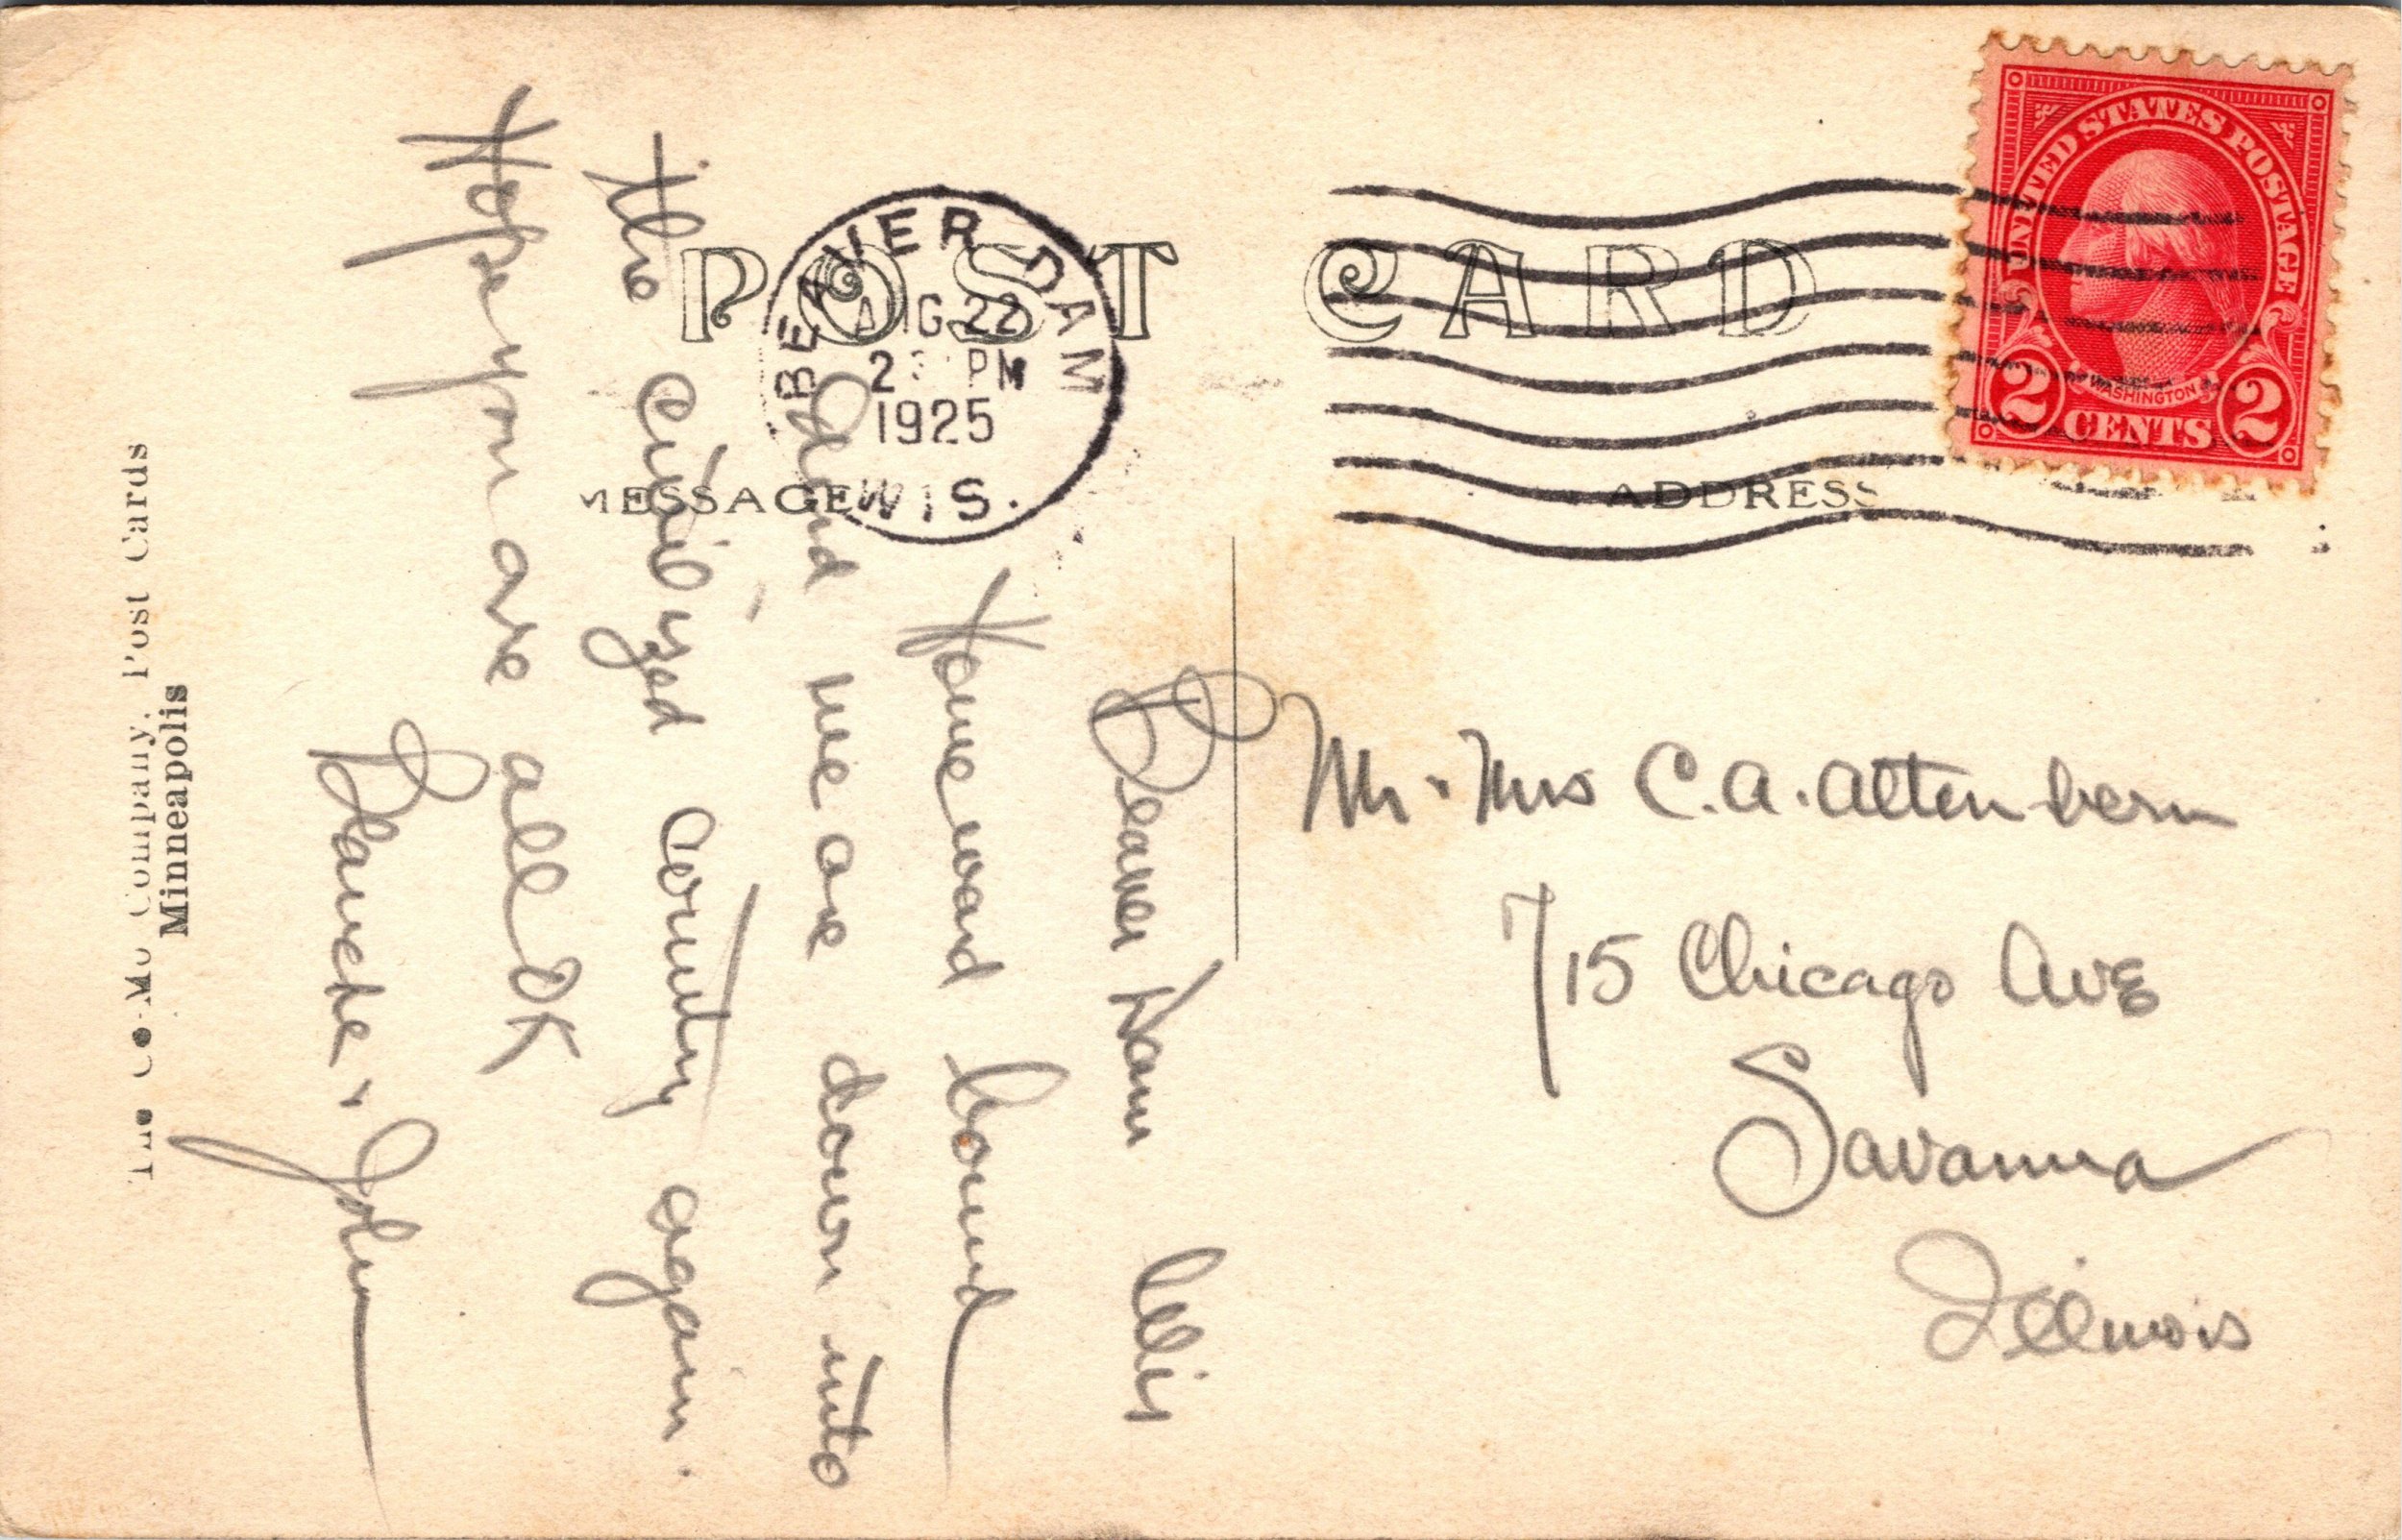 POST CARD
BEAVER DAM
AUG 22
2 PM
1925
WIS.
UNITED STATES POSTAGE
WASHINGTON
2 CENTS 2
MESSAGE
ADDRESS
Beaver Dam Wis
Homeward bound
and we are down into
the civilized country again.
Hope you are all OK
Blanche & John
Mr. Mrs C. A. Altenbern
715 Chicago Ave
Savanna
Illinois
The Co-Mo Company, Post Cards
Minneapolis